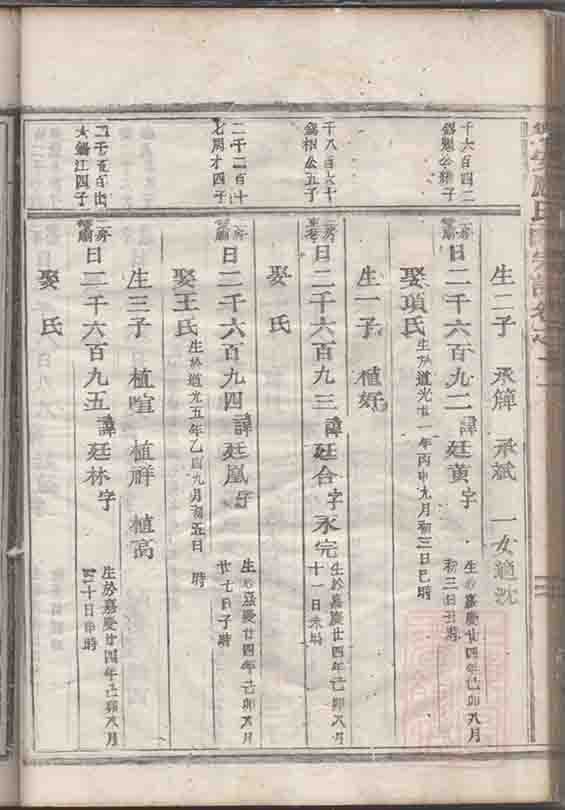 生二子 承籜 承斌 一女適沈
千六百四二
日二千六百九二 諱廷黄 字
生於嘉慶廿四年己卯八月
初三日丑時
娶項氏
生於道光 一年丙申九月初三日巳時
生一子 植好
千八百六十
公五子
日二千六百九三 諱廷合 字永完
生於嘉慶廿四年己卯八月
十一日未時
娶 氏
二千二百十
七周才四子
日二千六百九四 諱廷凰 字
生於嘉慶廿四年己卯八月
廿七日子時
娶王氏
生於道光五年乙酉九月初五日 時
生三子 植喧 植群 植高
二千五百
大 江四子
日二千六百九五 諱廷林 字
生於嘉慶廿四年己卯八月
三十日申時
娶 氏